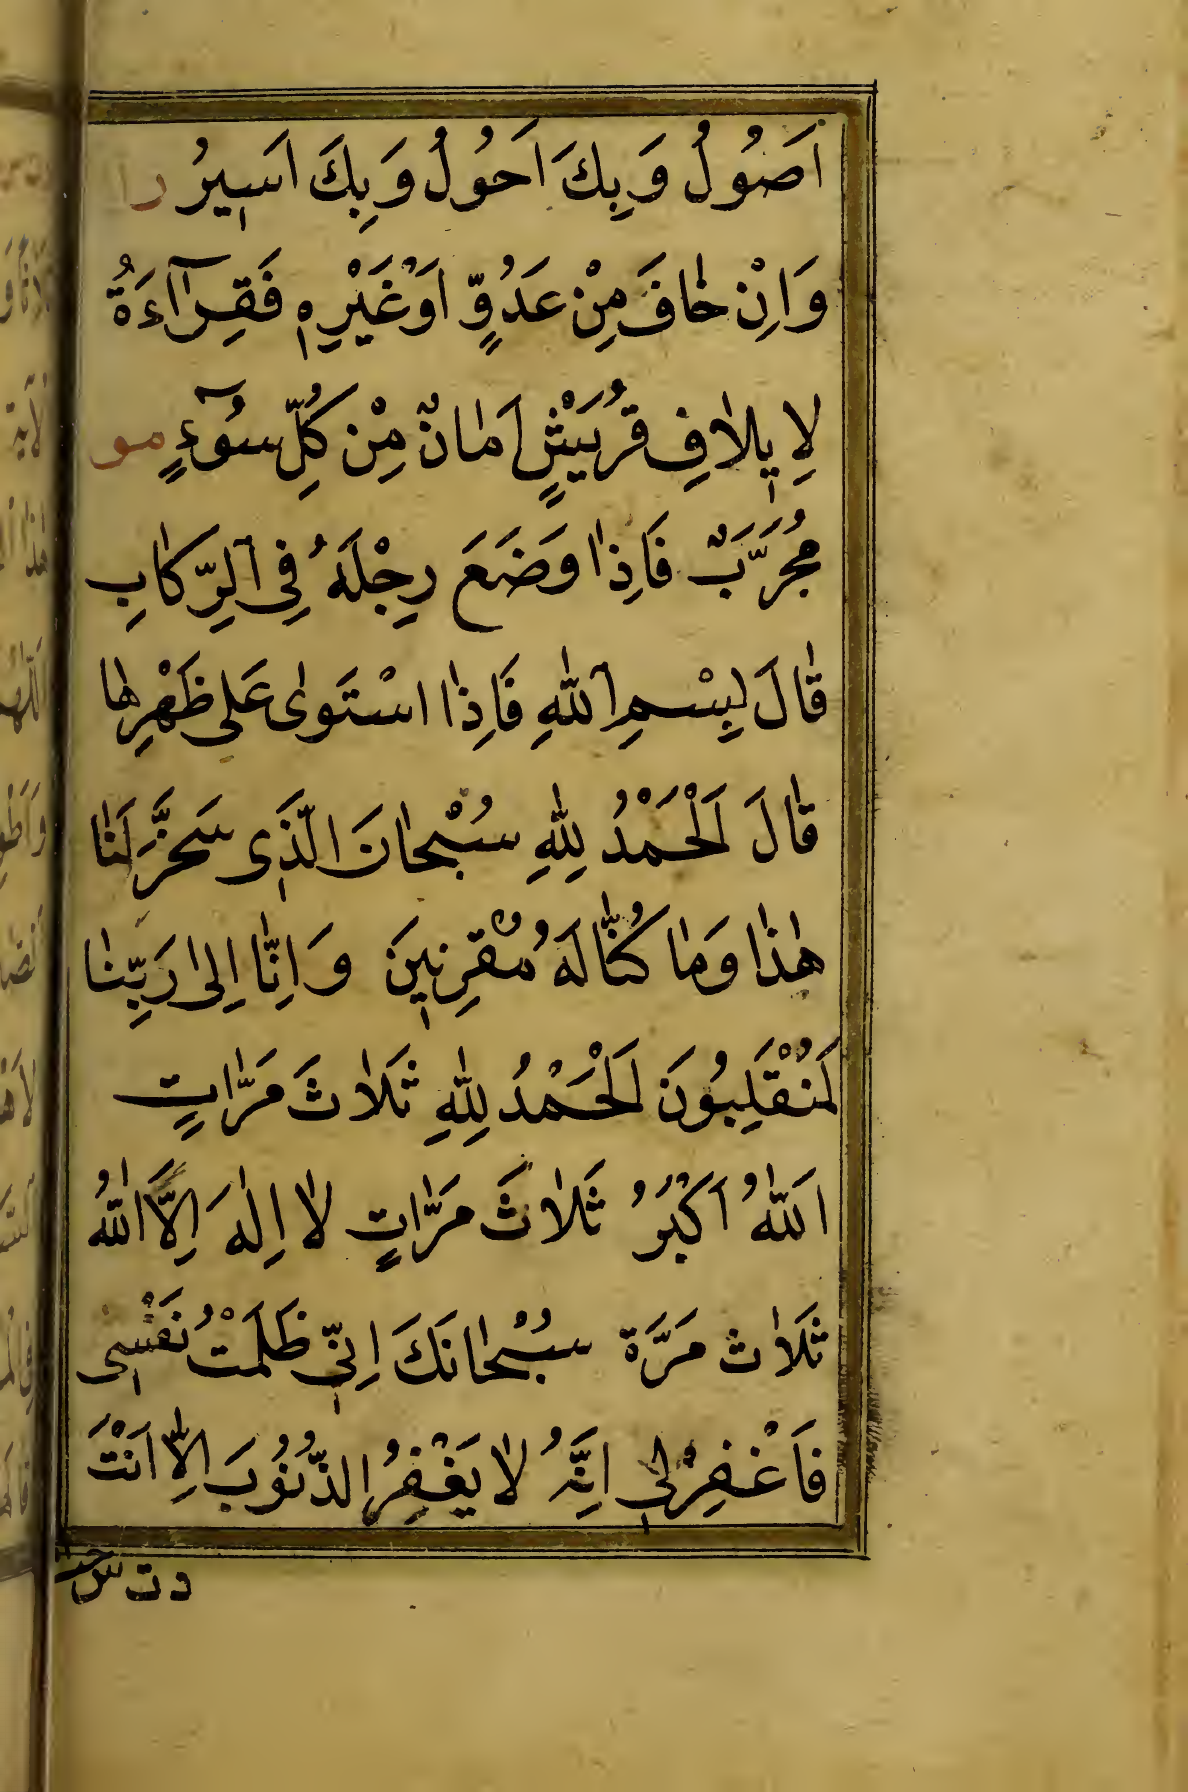 اَصُولُ وَبِكَ اَحُولُ وَبِكَ اَسِيرُ را
وَاِنْ خَافَ مِنْ عَدُوٍّ اَوْ غَيْرِهِ فَقِرَآءَةُ
لِاِيلَافِ قُرَيْشٍ اَمَانٌ مِنْ كُلِّ سُوٓءٍ مو
مُجَرَّبٌ فَاِذَا وَضَعَ رِجْلَهُ فِي الرِّكَابِ
قَالَ بِسْمِ اللّٰهِ فَاِذَا اسْتَوٰى عَلٰى ظَهْرِهَا
قَالَ اَلْحَمْدُ لِلّٰهِ سُبْحَانَ الَّذِى سَخَّرَ لَنَا
هٰذَا وَمَا كُنَّا لَهُ مُقْرِنِينَ وَاِنَّا اِلٰى رَبِّنَا
لَمُنْقَلِبُونَ اَلْحَمْدُ لِلّٰهِ ثَلَاثَ مَرَّاتٍ
اَللّٰهُ اَكْبَرُ ثَلَاثَ مَرَّاتٍ لَا اِلٰهَ اِلَّا اللّٰهُ
ثَلَاث مَرَّة سُبْحَانَكَ اِنِّي ظَلَمْتُ نَفْسِى
فَاغْفِرْ لِي اِنَّهُ لَا يَغْفِرُ الذُّنُوبَ اِلَّا اَنْتَ
د ت س